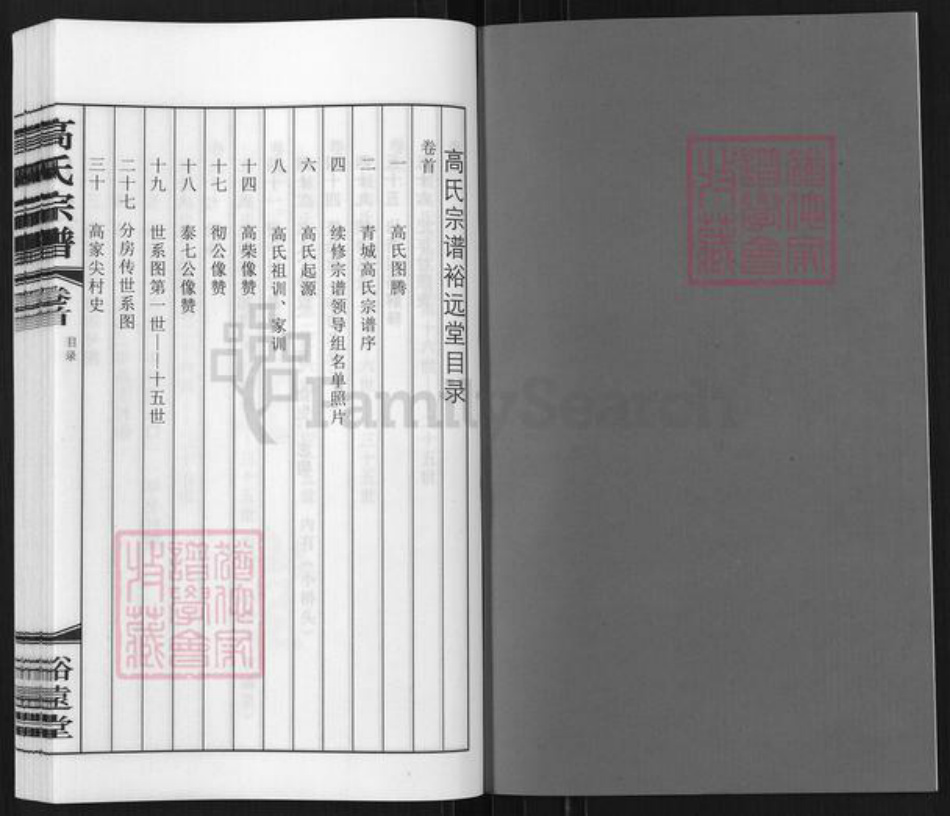 高氏宗谱裕远堂目录
卷首
一 高氏图腾
二 青城高氏宗谱序
四 续修宗谱领导组名单照片
六 高氏起源
八 高氏祖训、家训
十四 高柴像赞
十七 彻公像赞
十八 泰七公像赞
十九 世系图第一世——十五世
二十七 分房传世系图
三十 高家尖村史
高氏宗谱
卷首
目录
裕远堂
FamilySearch
犹他家谱学会收藏
犹他家谱学会收藏